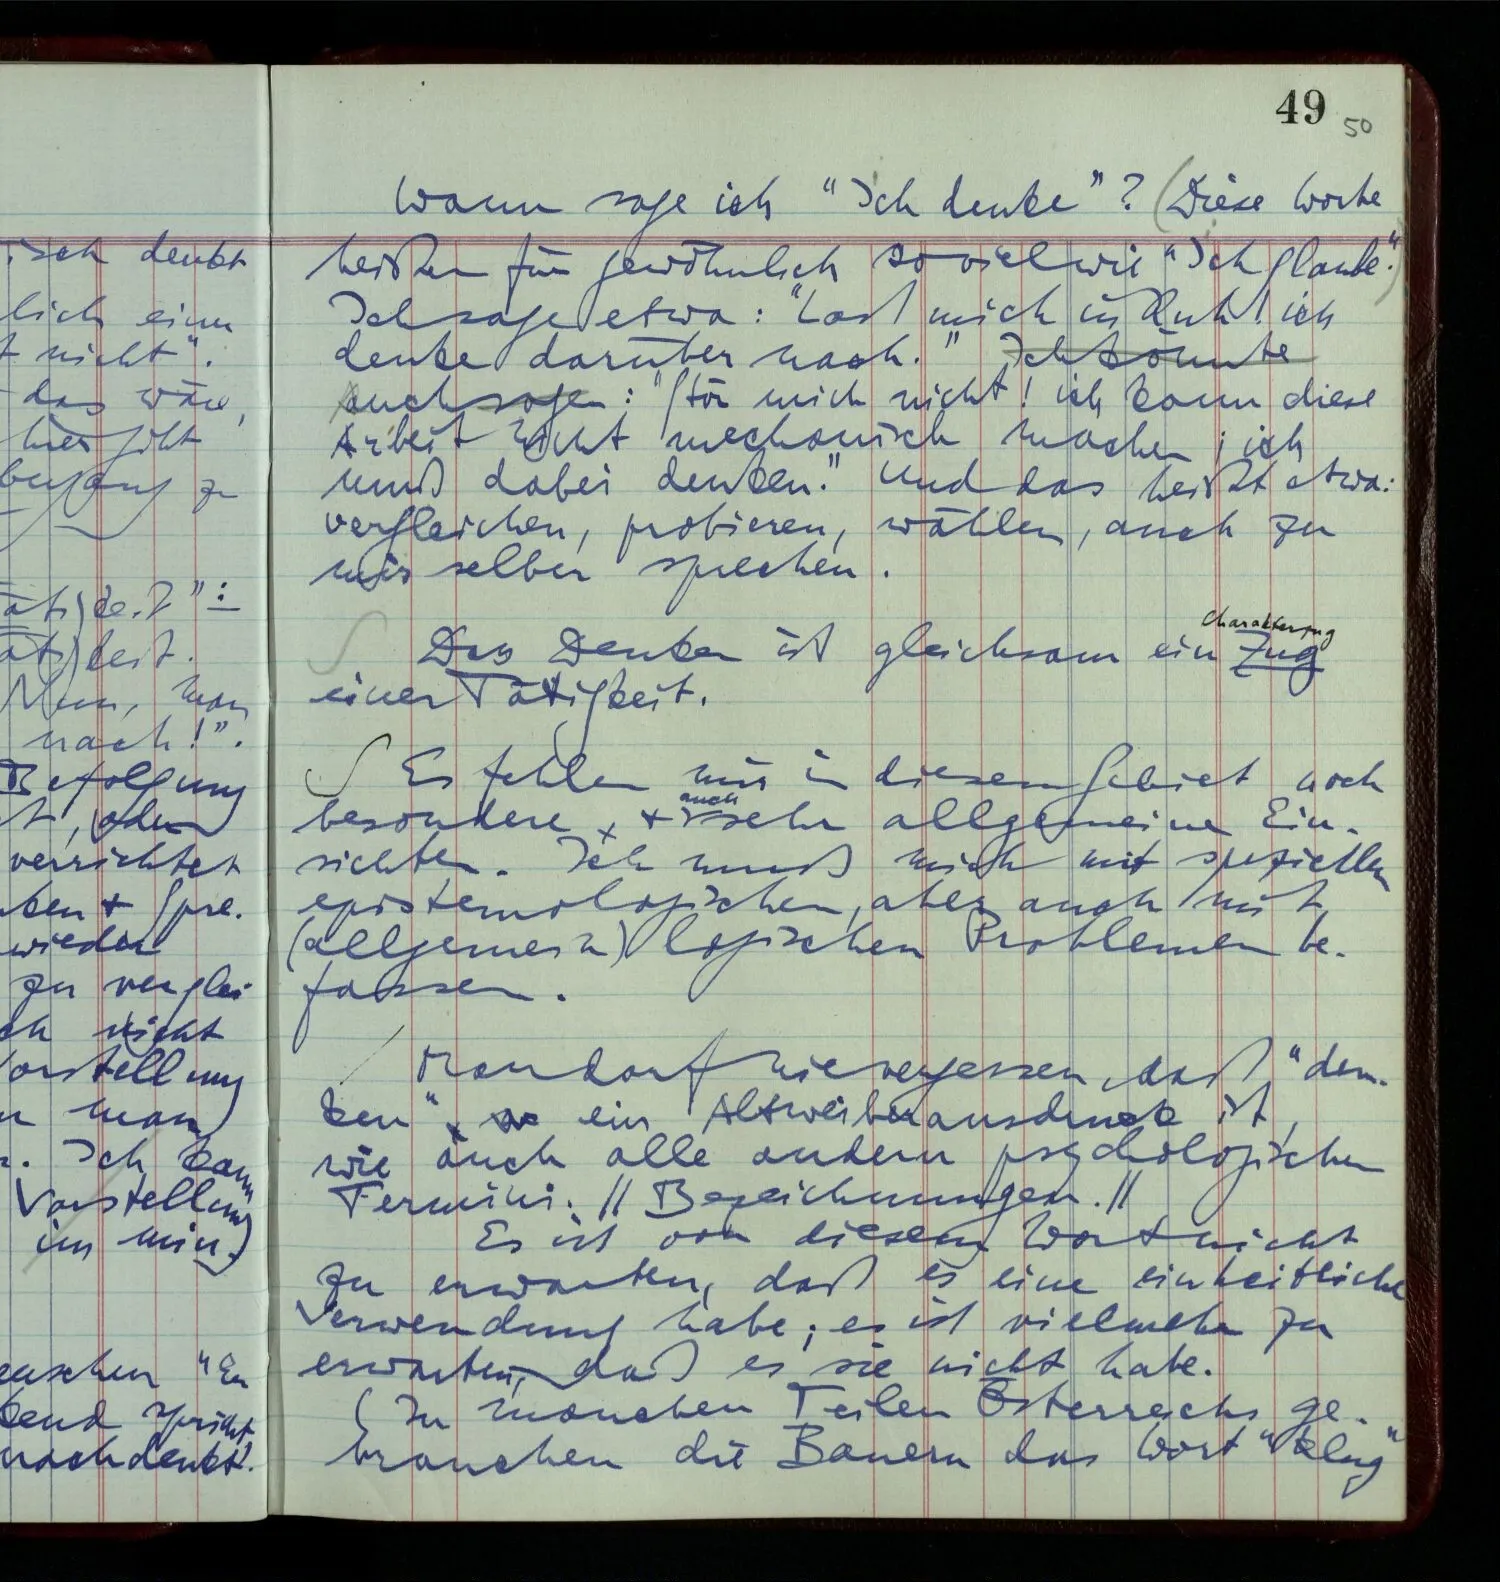 49 50
isch denkt
lich einen
t nicht".
das wäre,
hier gibt
zu
ätigkeit":
ätigkeit.
Nun, man
nach!".
Befolgung
t, oder
verrichtet
ken + Spre-
wieder
zu verglei
ch nicht
Vorstellung
n man
. Ich kann
Vorstellung
im min.)
enschen "En
kend spricht
nachdenkt?
Wann sage ich "Ich denke"? (Diese Worte
heißen für gewöhnlich so viel wie "Ich glaube".)
Ich sage etwa: "Lass mich in Ruh! ich
denke darüber nach." Ich könnte
auch sagen: "Stör mich nicht! ich kann diese
Arbeit nicht mechanisch machen; ich
muß dabei denken." Und das heißt etwa:
vergleichen, probieren, wählen, auch zu
mir selber sprechen.
Das Denken ist gleichsam ein Charakterzug Zug
einer Tätigkeit.
Es fehlen mir in diesem Gebiet noch
besondere, + auch sehr allgemeine Ein-
sichten. Ich muß mich mit speziellen
epistemologischen, aber auch mit
(allgemein) logischen Problemen be-
fassen.
Man darf nie vergessen, daß "den-
ken" ein Altweiberausdruck ist,
wie auch alle andern psychologischen
Termini. || Bezeichnungen. ||
Es ist von diesem Wort nicht
zu erwarten, daß es eine einheitliche
Verwendung habe; es ist vielmehr zu
erwarten, daß es sie nicht habe.
(In manchen Teilen Österreichs ge-
brauchen die Bauern das Wort "klug"